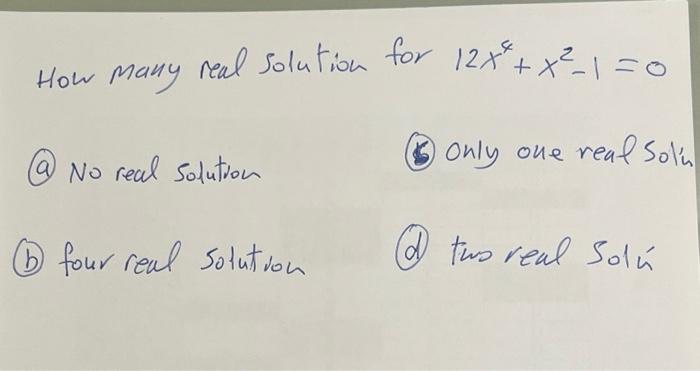 How many real solution for 12x⁴ + x² - 1 = 0
ⓐ No real solution
ⓒ only one real Sol'n
ⓑ four real solution
ⓓ two real Sol'n